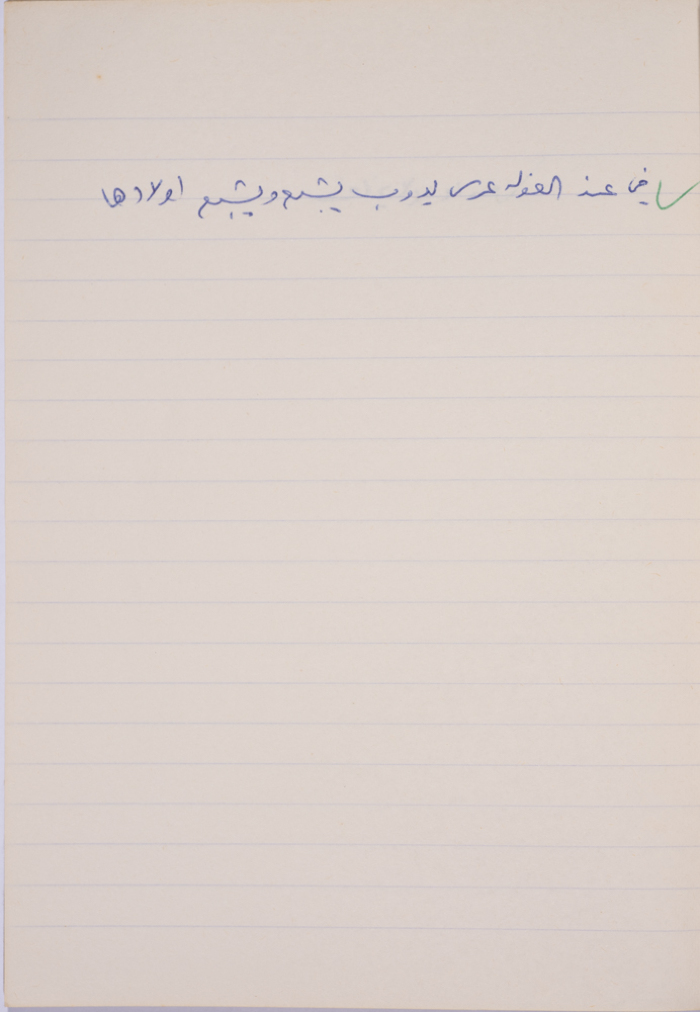 في عند الغوله عرس يدوب يشبع ويشبع اولادها